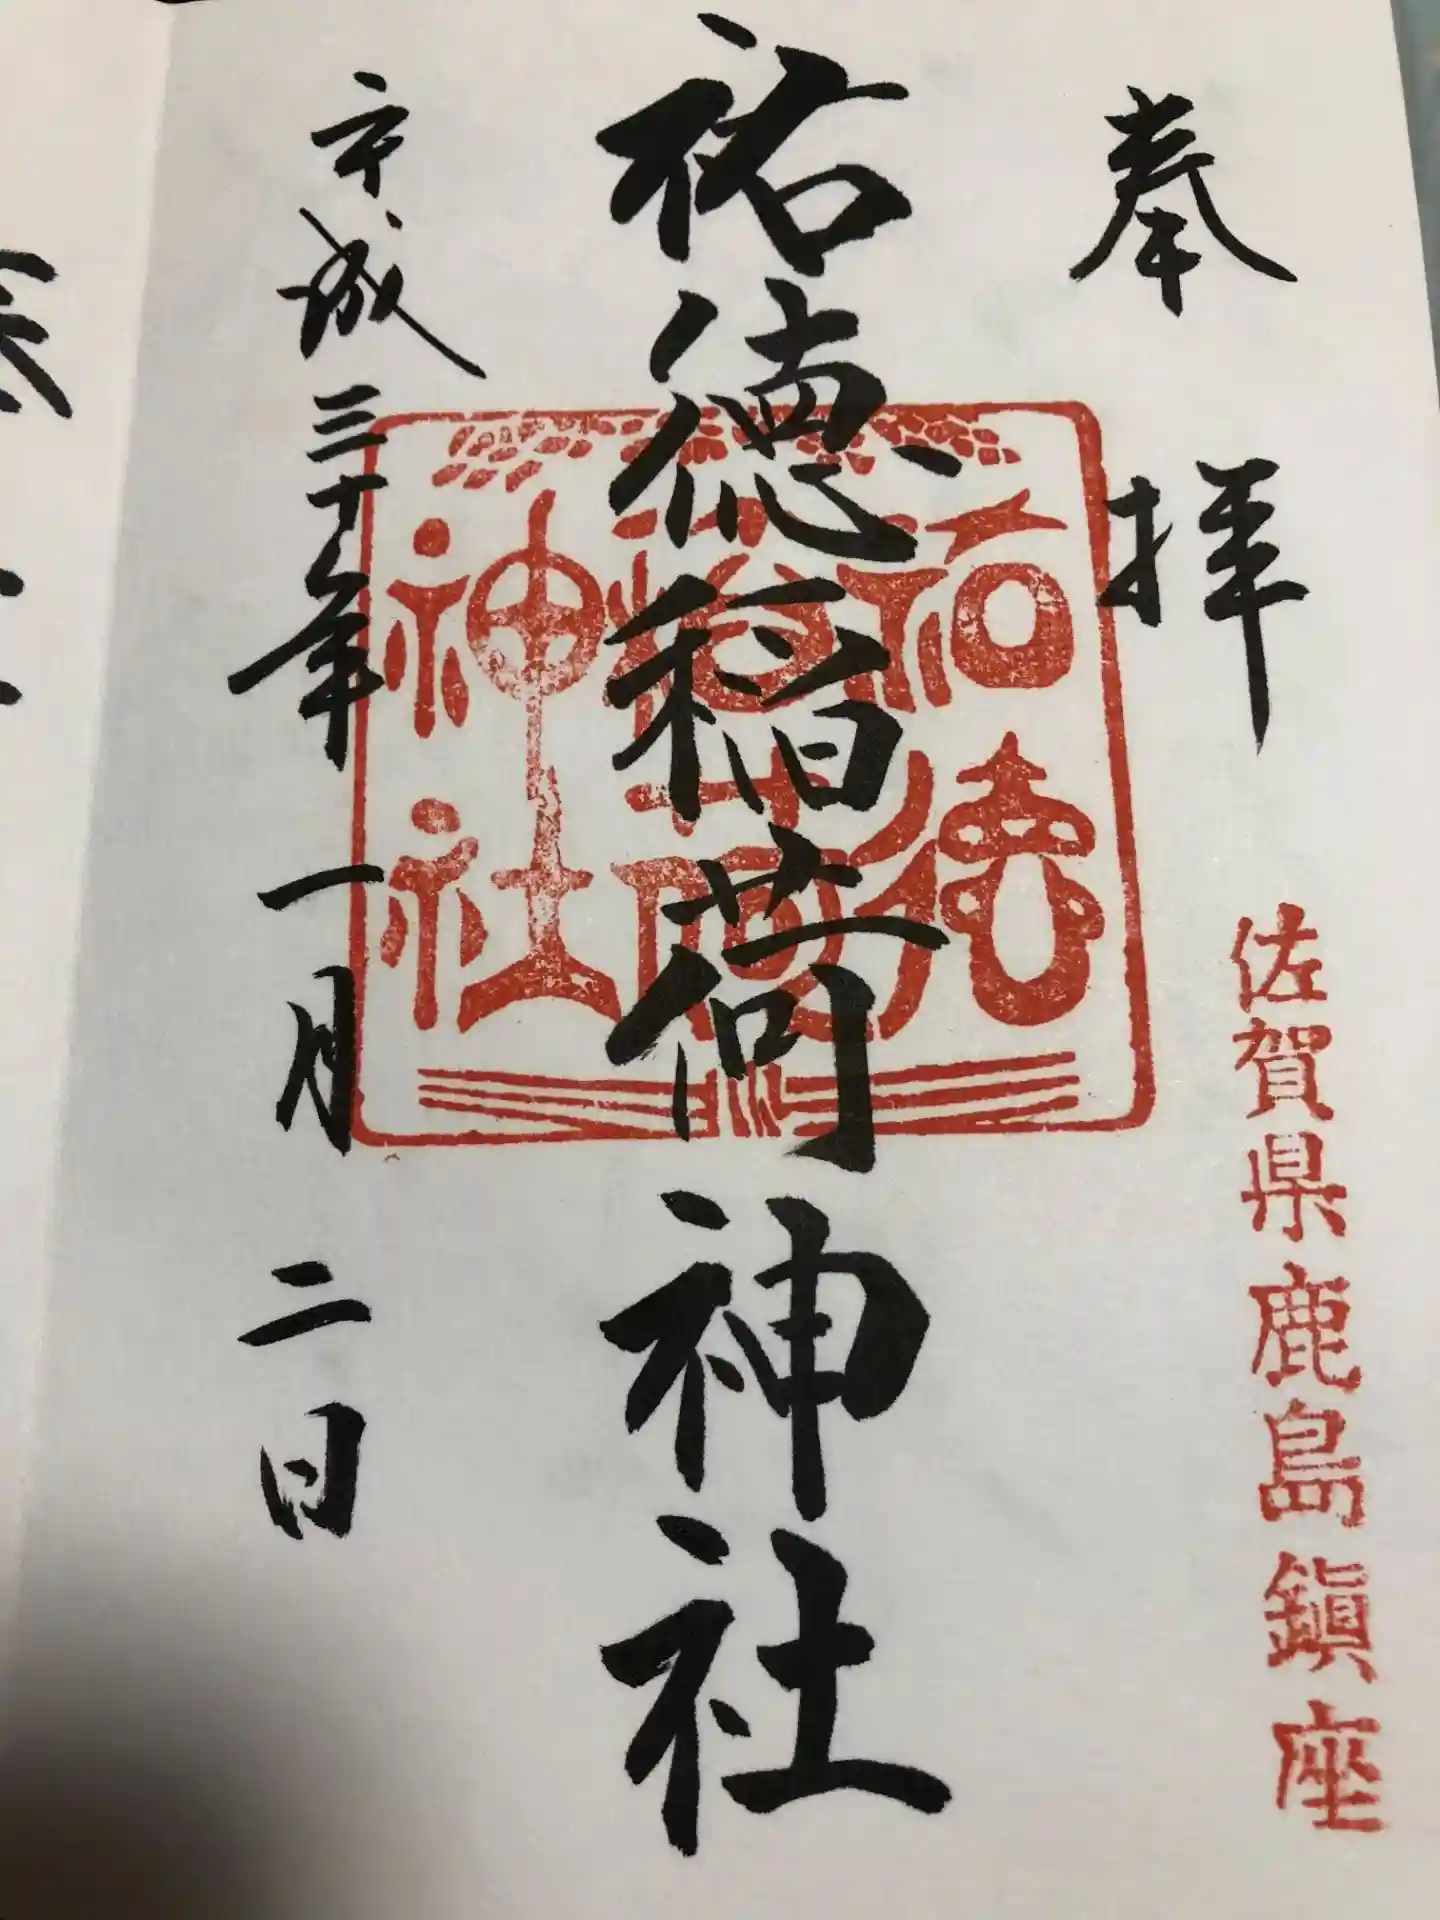 奉拝
佐賀県鹿島鎮座
祐徳稲荷神社
祐徳
稲荷
神社
平成三十年一月二日